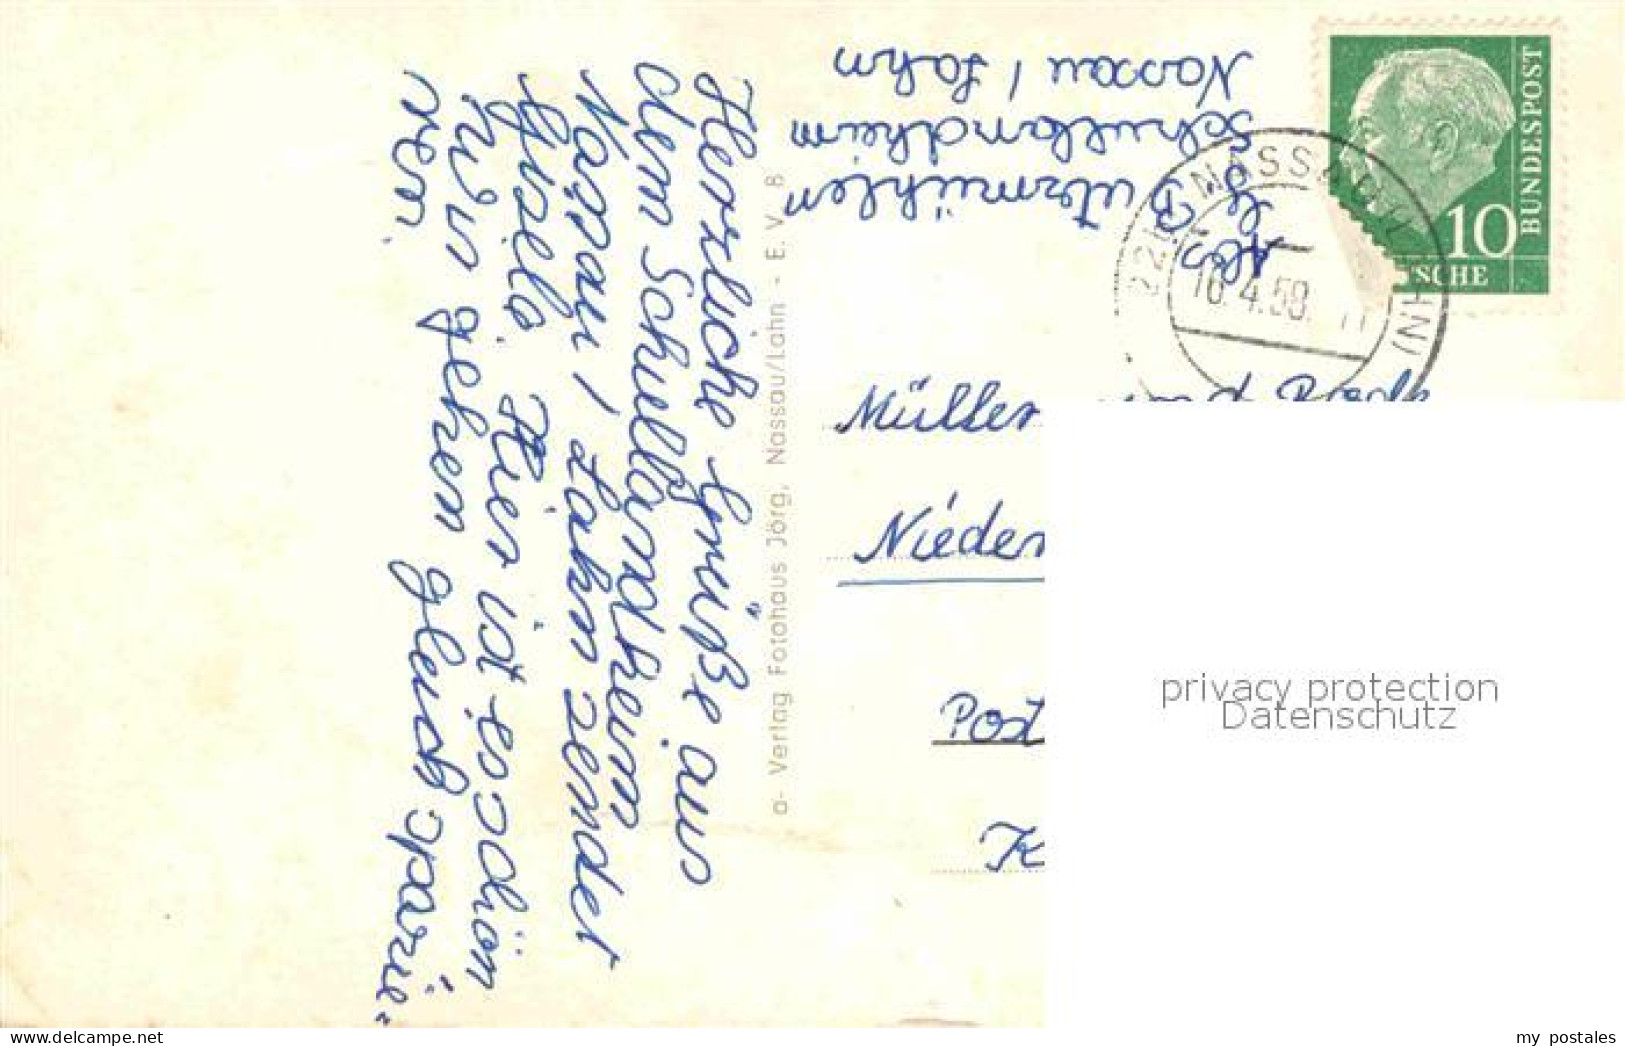 Herzliche Grüße aus
dem Schullandheim
Nassau / Lahn sendet
Gisela. Hier ist es schön
wir gehen gleich spazie„
ren.
a- Verlag Fotohaus Jörg, Nassau/Lahn - E. V. 8
Abs.
Butzmühlen
Schullandheim
Nassau / Lahn
DEUTSCHE
BUNDESPOST
10
NASSAU
10.4.58.
Müller
Nieder
Post
K
privacy protection
Datenschutz
my postales